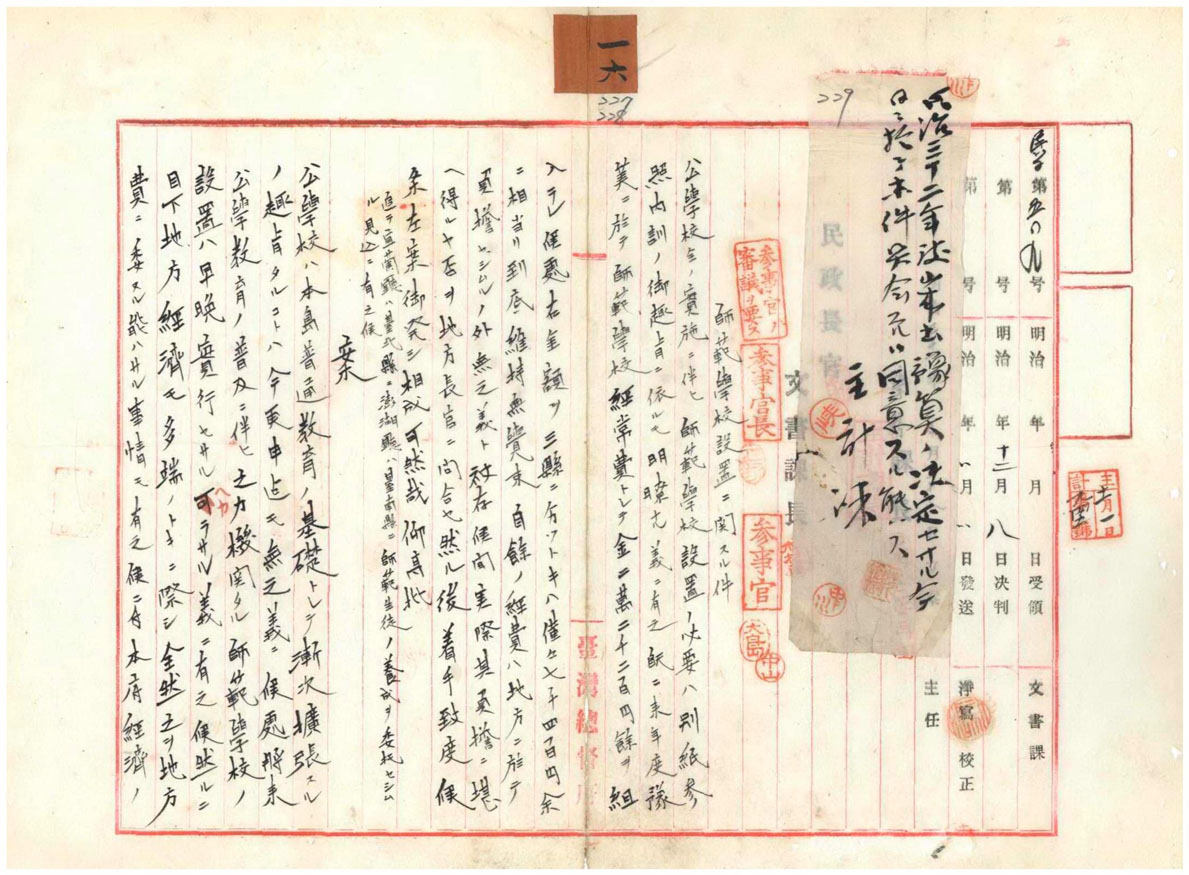 一六
227
228
第五〇九号 明治 年 月 日受領 文書課
第 号 明治 年十二月八日决判
第 号 明治 年 月 日発送 浄寫 校正
主任
十二月一日
229
明治三十二年 歳出豫算ハ決定セサル今
日ニ於テ本件照会ニハ同意スル能ハス
主計課
民政長官
文書課長
参事官ノ
審議ヲ要ス
参事官長
参事官
大島
中山
師範學校設置ニ関スル件
公學校令ノ實施ニ伴ヒ師範學校設置ノ必要ハ別紙参
照内訓ノ御趣旨ニ依ルモ明瞭ナル義ニ有之 來年度豫
算ニ於テ師範學校経常費トシテ金二萬二千二百円餘ヲ組
入テレ候處右金額ヲ三縣ニ分ツトキハ僅々七千四百円余
ニ相当リ到底維持無覺束自餘ノ経費ハ地方ニ於テ
負擔セシムルノ外無之義ト被存候間実際其負擔ニ堪
ヘ得ルヤ否ヲ地方長官ニ問合セ然ル後着手致度候
条左案御発シ相成可然哉仰高批
追テ宜蘭廳ハ臺北縣ニ澎湖廳ハ臺南縣ニ師範生徒ノ養成ヲ委托セシム
ル見込ニ有之候
案
公學校ハ本島普通教育ノ基礎トシテ漸次擴張スル
ノ趣旨タルコトハ今更申迄モ無之義ニ候處将来
公學教育ノ普及ニ伴ヒ之カ機関タル師範學校ノ
設置ハ早晩實行セサル可ラサルノ義ニ有之候然ルニ
目下地方経済モ多端ノトキニ際シ全然之ヲ地方
費ニ委スル能ハサル事情モ有之候ニ付本府経済ノ
臺灣總督府